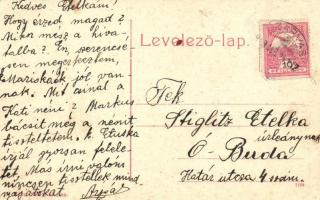 Kedves Etelkám!
Hogy érzed magad?
Mien mész a hiva-
talba? Én, szerencsé-
sen megérkeztem,
Mariskáék jól van-
nak. Mit csinál a
Kati néni? Markus
bácsit még a nénit
tiszteltetem. k. Etuska
írjál gyorsan felele-
tet, Más írni valóm
nincsen tisztellek mind
nyájatokat Árpád
Levelező-lap.
Tek.
Stiglitz Etelka
úrleánynak
Ó-Buda
Határ utcza 4 szám.